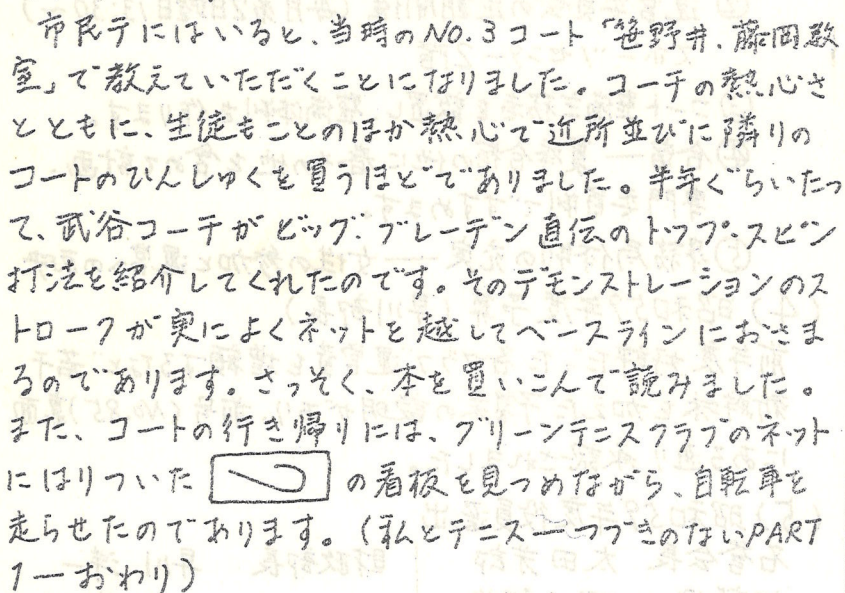 市民テにはいると、当時のNO.3コート「笹野井、藤岡教
室」で教えていただくことになりました。コーチの熱心さ
とともに、生徒もことのほか熱心で近所並びに隣りの
コートのひんしゅくを買うほどでありました。半年ぐらいたっ
て、武谷コーチがビッグ.ブレーデン直伝のトップ・スピン
打法を紹介してくれたのです。そのデモンストレーションのス
トロークが実によくネットを越してベースラインにおさま
るのであります。さっそく、本を買いこんで読みました。
また、コートの行き帰りには、グリーンテニスクラブのネット
にはりついた の看板を見つめながら、自転車を
走らせたのであります。(私とテニス―つづきのないPART
1―おわり)